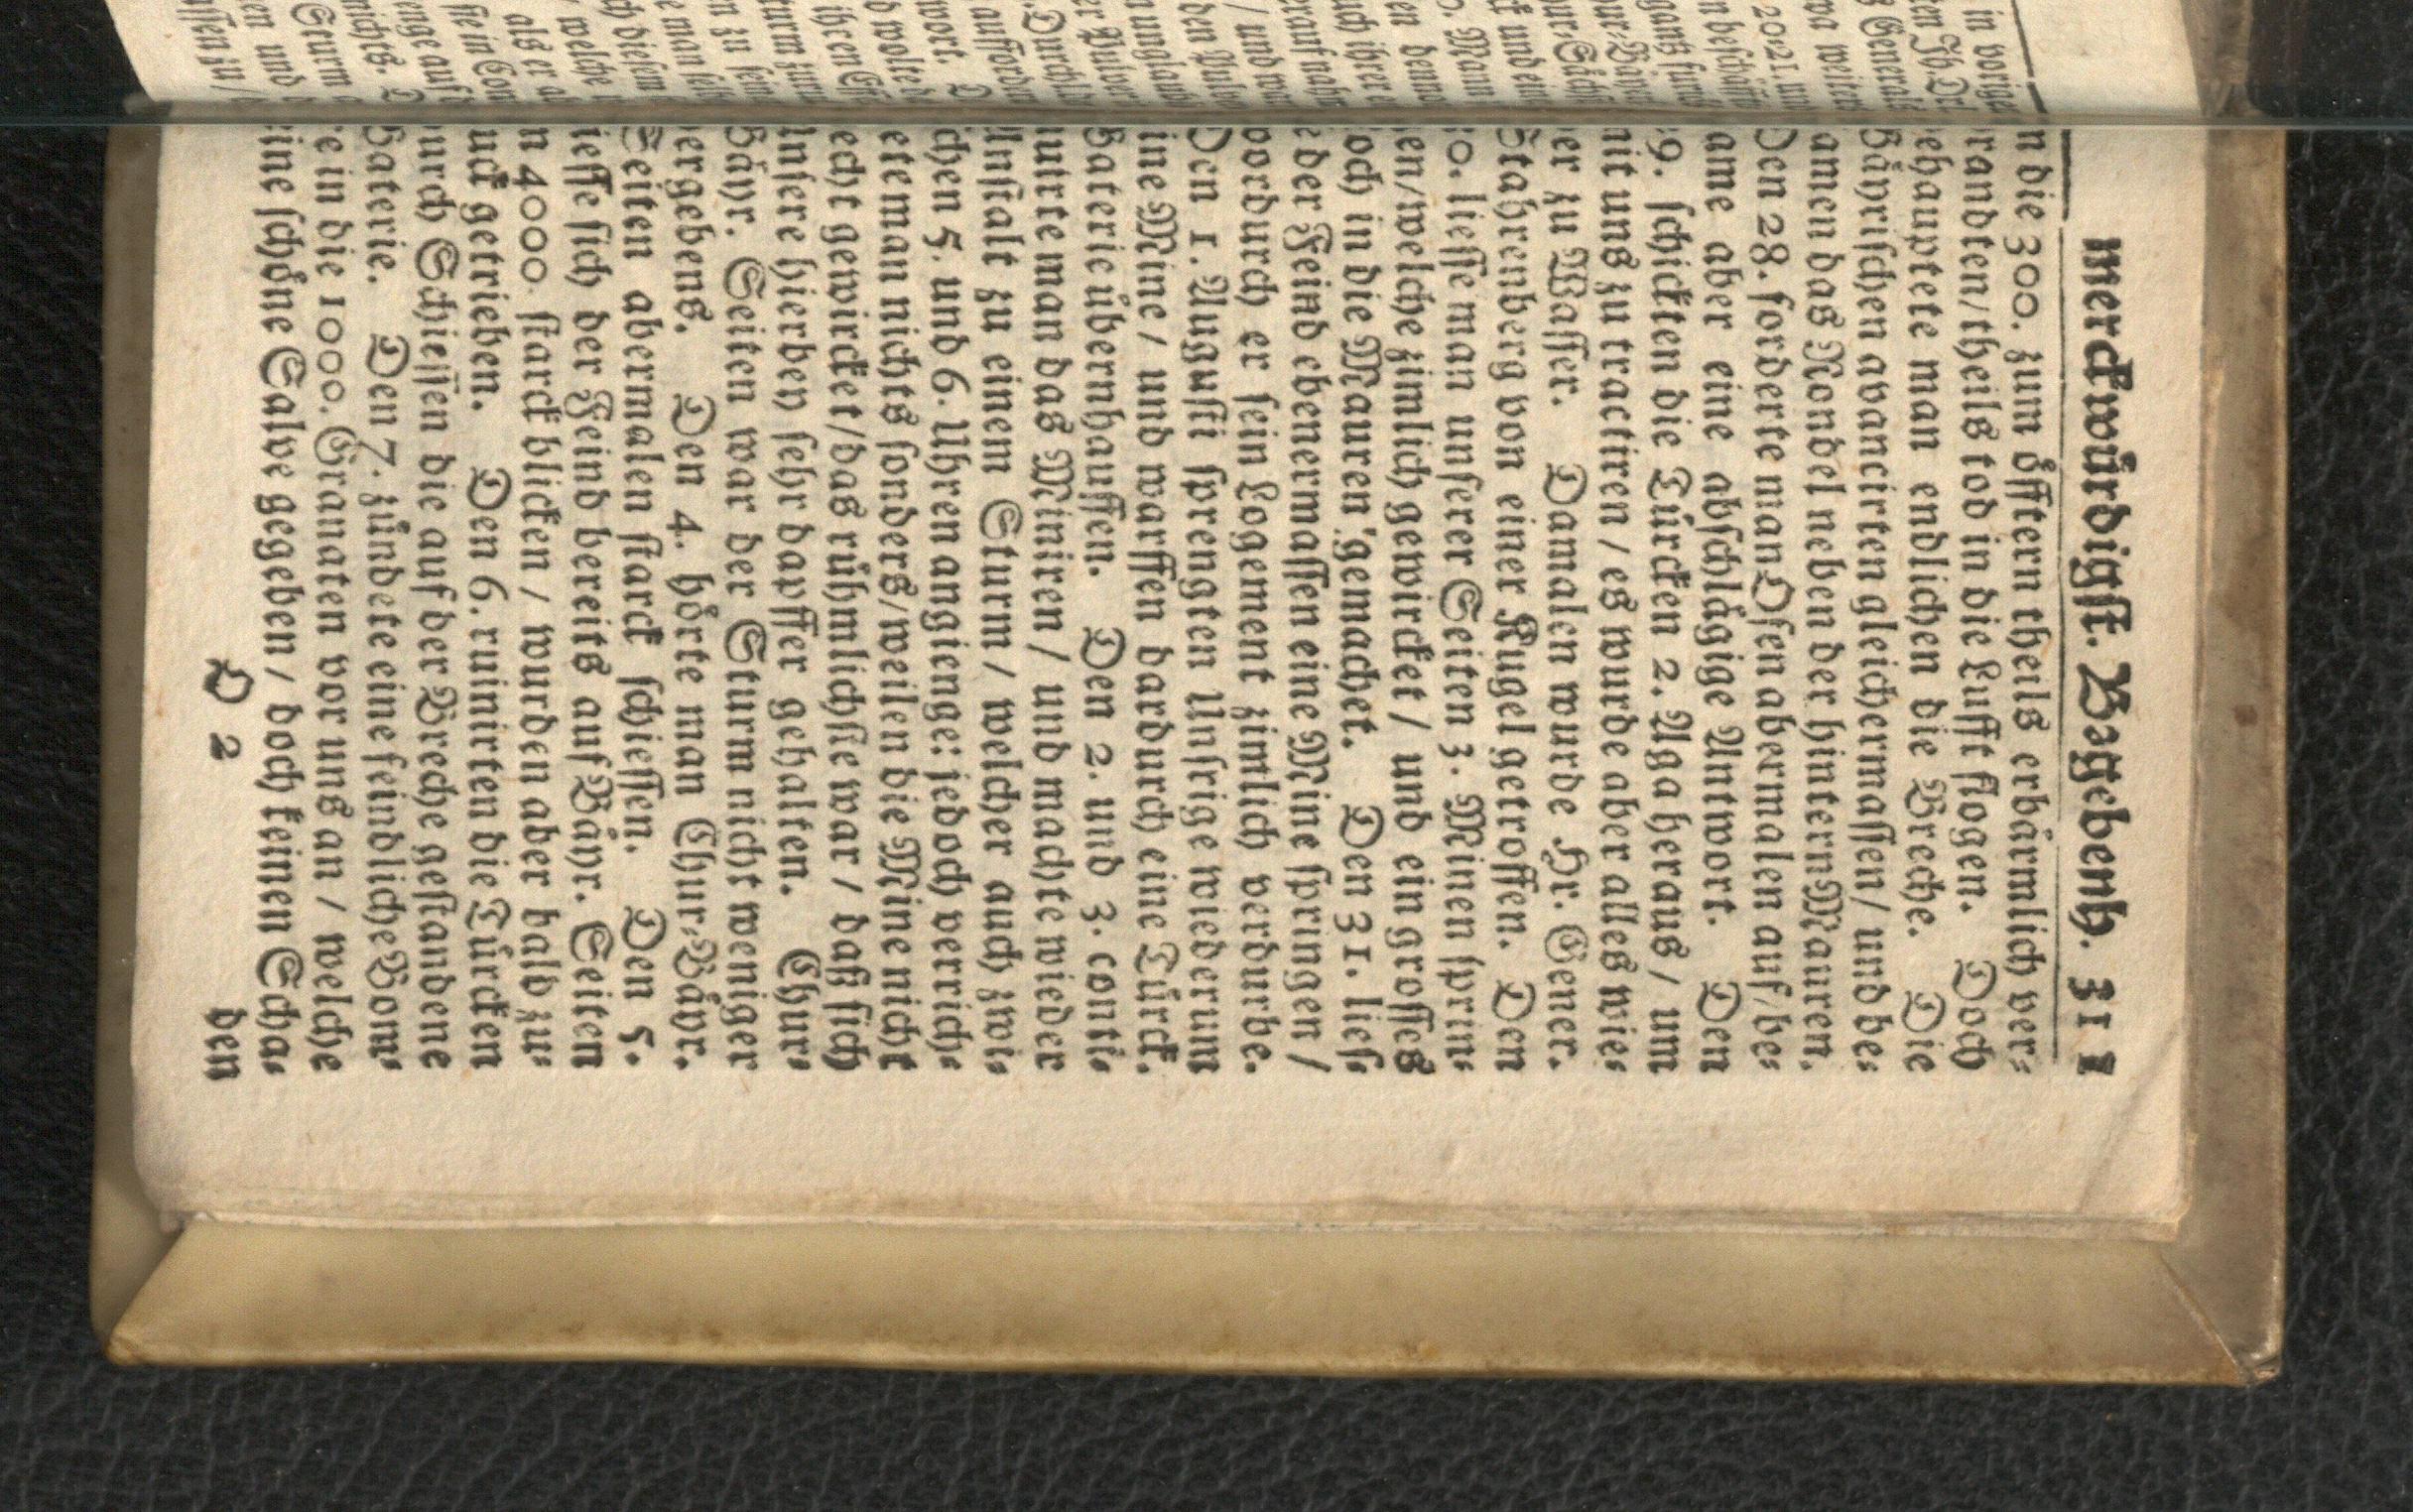 merckwürdigst. Bagebenh. 311
n die 300. zum öfftern theils erbärmlich ver-
randten/theils tod in die Lufft flogen. Doch
ehauptete man endlichen die Breche. Die
Bäyrischen avancirten gleichermassen/ und be-
amen das Rondel neben der hintern Mauren.
Den 28. forderte man Ofen abermalen auf/be-
ame aber eine abschlägige Antwort. Den
29. schickten die Türcken 2. Aga heraus/ um
mit uns zu tractiren/ es wurde aber alles wie-
er zu Wasser. Damalen wurde Hr. Gener.
Stahrenberg von einer Kugel getroffen. Den
30. liesse man unserer Seiten 3. Minen sprin-
en/welche zimlich gewircket/ und ein grosses
och in die Mauren gemachet. Den 31. lies-
e der Feind ebenermassen eine Mine springen/
oordurch er sein Logement zimlich verdurbe.
Den 1. Augusti sprengten Unsrige wiederum
ine Mine/ und warffen dardurch eine Türck.
Baterie übernhauffen. Den 2. und 3. conti-
uirte man das Miniren/ und machte wieder
Anstalt zu einem Sturm/ welcher auch zwi-
chen 5. und 6. Uhren angienge: jedoch verrich-
ete man nichts sonders/weilen die Mine nicht
echt gewircket/das rühmlichste war/ daß sich
Unsere hierbey sehr dapffer gehalten. Chur-
Bäyr. Seiten war der Sturm nicht weniger
ergebens. Den 4. hörte man Chur-Bäyr.
Seiten abermalen starck schiessen. Den 5.
iesse sich der Feind bereits auf Bäyr. Seiten
n 4000. starck blicken/ wurden aber bald zu-
uck getrieben. Den 6. ruinirten die Türcken
urch Schiessen die auf der Breche gestandene
Baterie. Den 7. zündete eine feindliche Bom-
e in die 1000. Granaten vor uns an/ welche
ine schöne Salve gegeben/ doch keinen Scha-
O 2 den